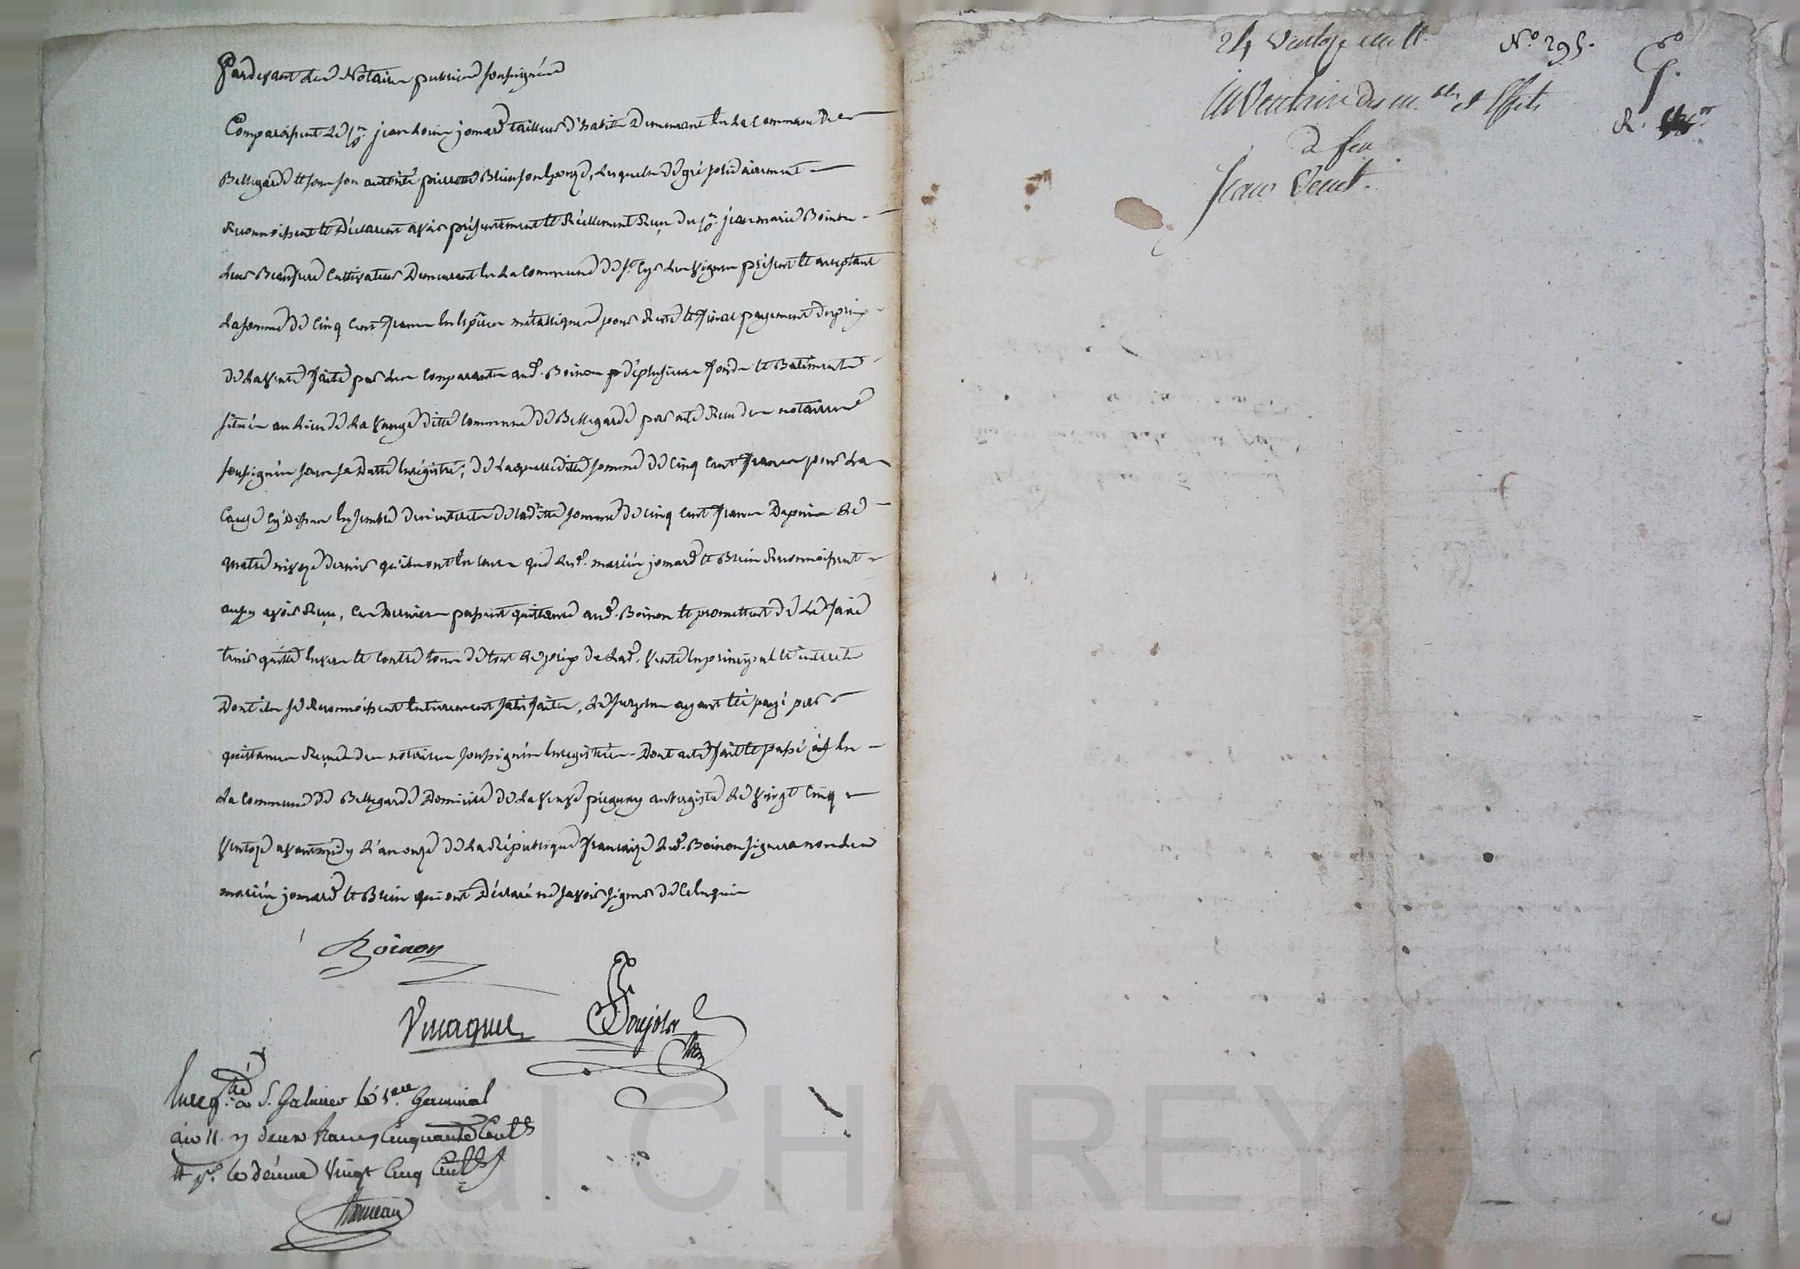 Pardevant Les Notaires publics soussignés
Comparaissent Le Sr. jean Louis jomard tailleur d'habits Demeurant En La Commune de
Bellegarde et sous son autorité Brun son Epouse, Lesquels de gré solidairement
Reconnoissent et Déclarent avoir présentement et Réellement Reçu du Sr. jean marie Boinon
Leur Beaufrere Cultivateur Demeurant En La Commune de St. Cyr Les Vignes présent et acceptant
La somme de Cinq Cent francs En Espèces métalliques pour Reste et final payement du prix
de La Vente faite par Les Comparants aud. Boinon de plusieurs fonds et Batiments
situés au Lieu de La dite Commune de Bellegarde par acte Reçu des notaires
soussignés sous sa Datte Enregistré; de Laquelle ditte somme de Cinq Cent francs pour La
Cause Cy dessus Ensemble des interets de laditte somme de cinq Cent francs Depuis Le
quatre nivose dernier qu'ils ont En Cours que Les d. mariés jomard et Brun Reconnoissent
aussy avoir Reçu, Ces Derniers passent quittance aud. Boinon et promettent de Le faire
tenir quitte Envers et Contre tous de tout Le prix de Lad. Vente En principal et interets
Dont ils se Reconnoissent Entierement satisfaits, Le surplus ayant été payé par
quittances Reçues des notaires soussignés Enregistrées. Dont acte fait et passé En
La Commune de Bellegarde Domicile de La Veuve aubergiste Le Vingt Cinq
Ventose avant midy L'an onze de La République française Led. Boinon signera non Les
mariés jomard et Brun qui ont Déclaré ne savoir signer de Ce Enquis
Boinon
Enregtré à S. Galmier le 5eme Germinal
an 11. deux francs Cinquante Cents
et pr. le déxime Vingt Cinq Cents
24 Ventose an 11.
No 295.
Inventaire des m.bles & Effets
de feu
Jean
R.
Pascal CHAREYRON